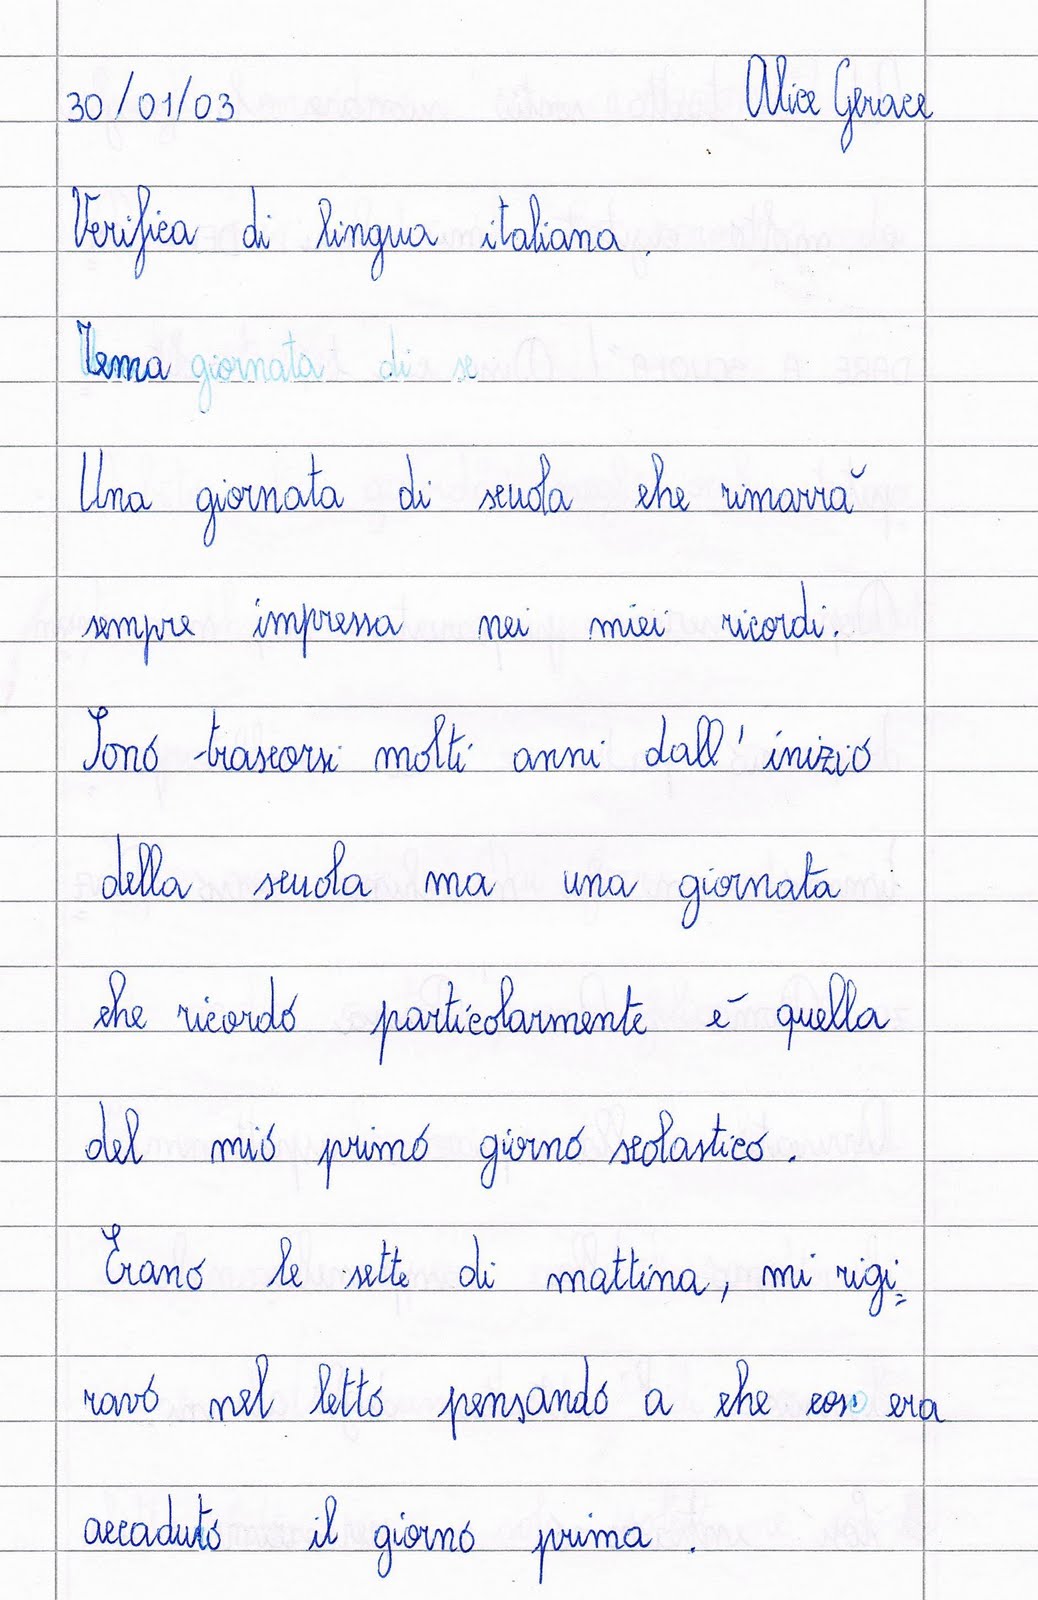 30/01/03 Alice Gerace
Verifica di lingua italiana.
Tema giornata di sc
Una giornata di scuola che rimarrà
sempre impressa nei miei ricordi.
Sono trascorsi molti anni dall'inizio
della scuola ma una giornata
che ricordo particolarmente è quella
del mio primo giorno scolastico.
Erano le sette di mattina, mi rigi=
ravo nel letto pensando a che cosa era
accaduto il giorno prima.